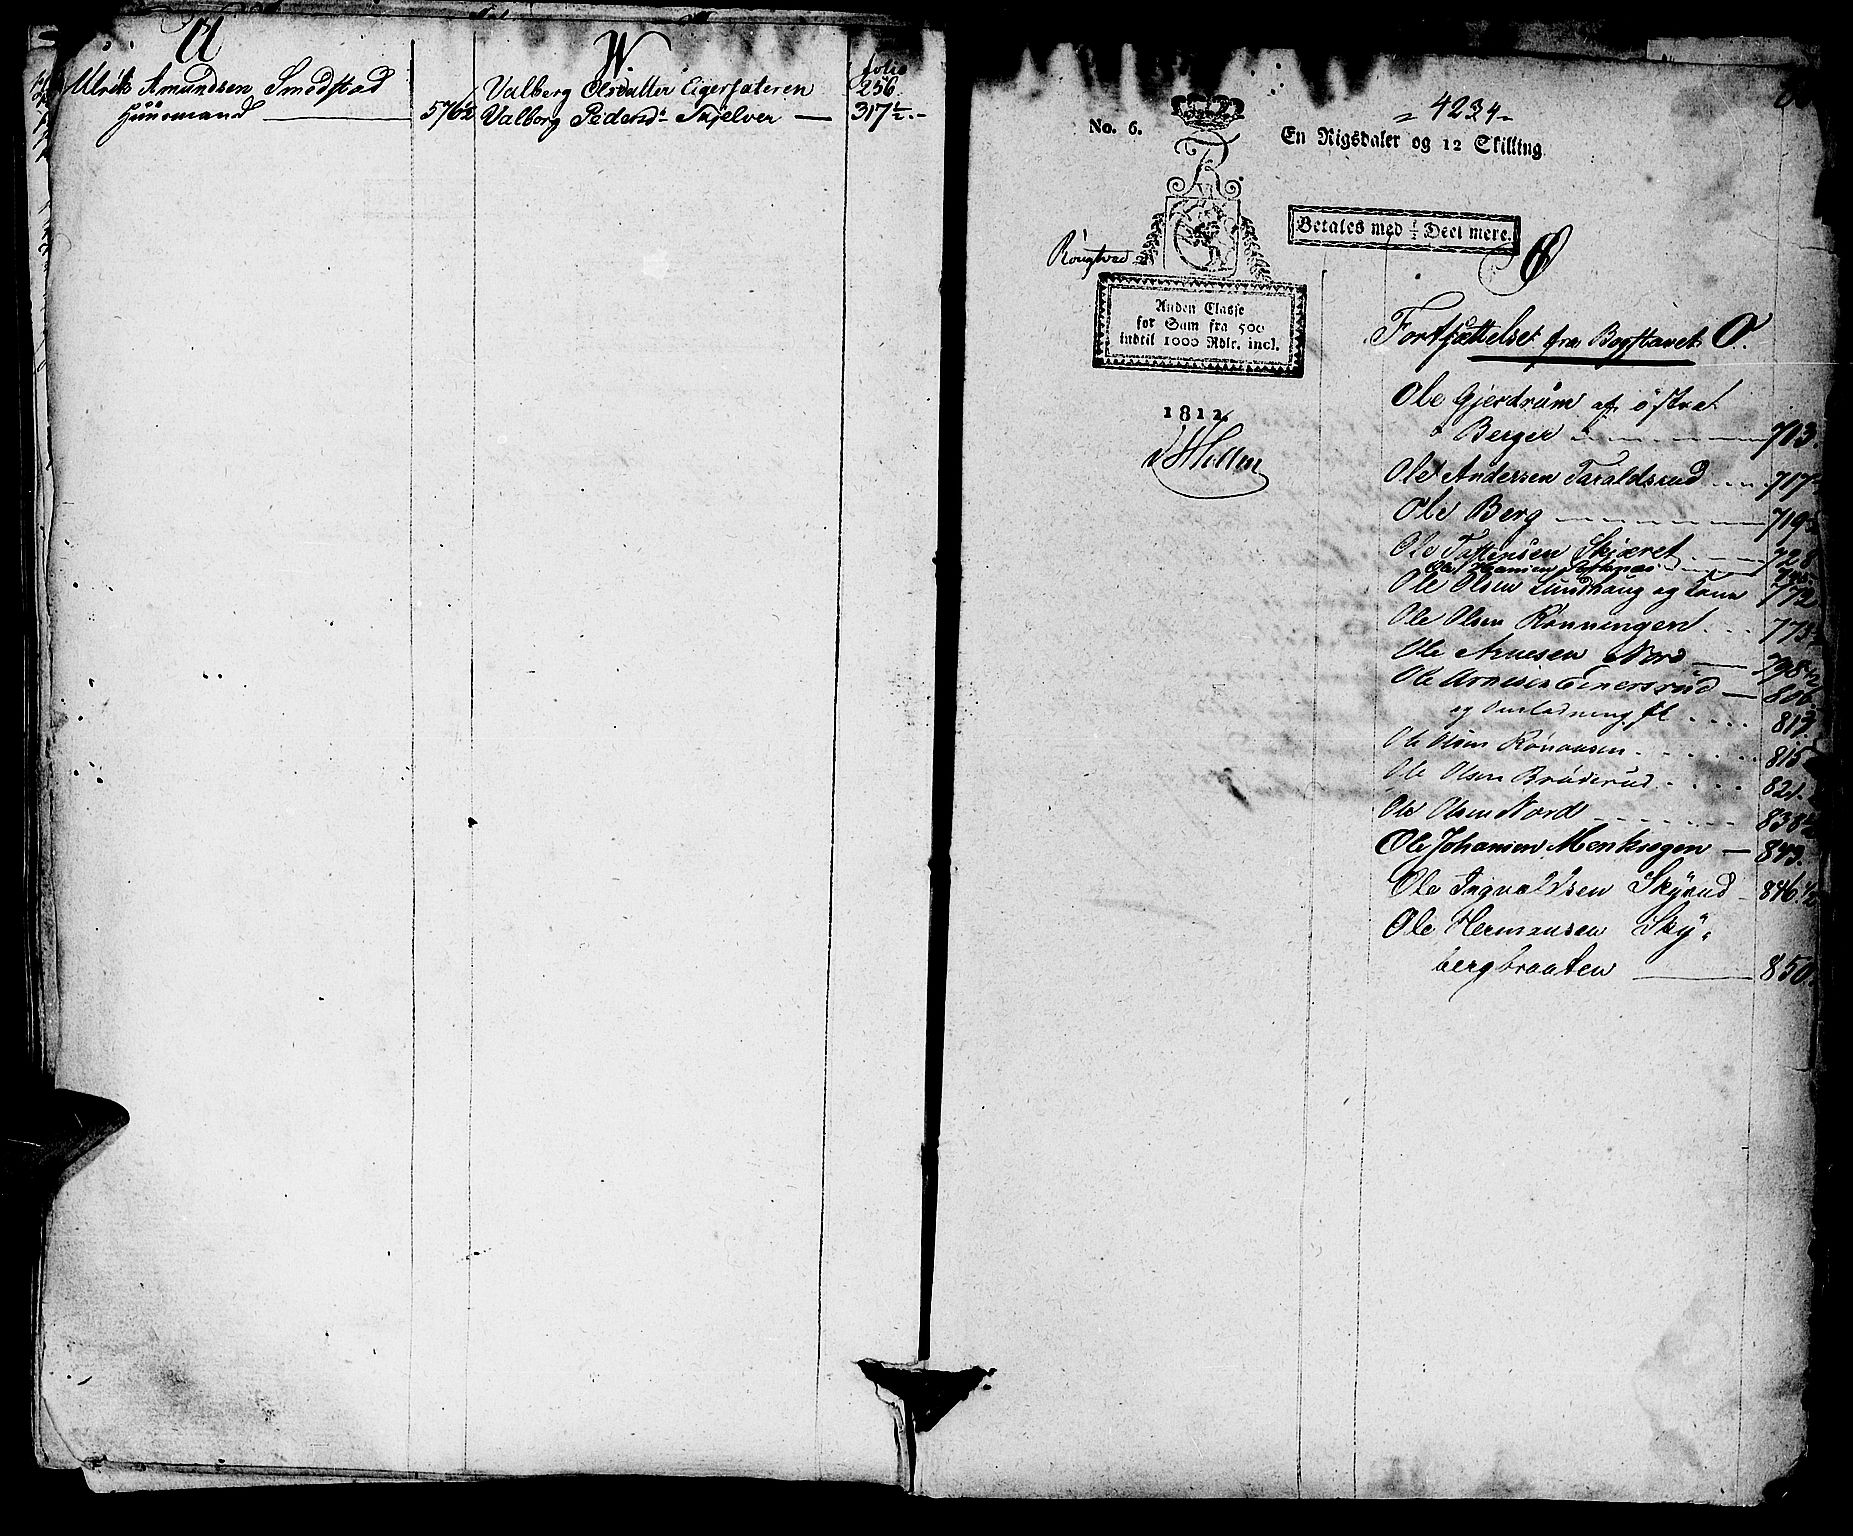 U
Ulrik Amundsen Smedstad
Huusmand 576½
W.
folio
Valberg Olsdatter Eigersateren 256.
Valborg Pedersd: Tjelver 317½
No. 6.
4234
En Rigsdaler og 12 Skilling
Betales med ½ Deel mere.
Anden Classe
for Sum fra 500
indtil 1000 Rdlr. incl.
1812.
Fortsættelse fra Bogstavet O.
Ole Gjerdrum af østre
Berger 703.
Ole Andersen Taraldsrud 717
Ole Berg 719
Ole Skjæret 728
Ole
Ole Olsen Lundhaug og Kone 772
Ole Olsen Rønningen 773
Ole Arnesen Nord 798½
Ole Arnesen Einersrud 806
og 813
Ole Olsen 815
Ole Olsen Bråderud 821.
Ole Olsen Nord 838½
Ole Johansen 843.
Ole Ingvaldsen Skyrud 846.½
Ole Hermansen Sky-
bergbraaten 850.